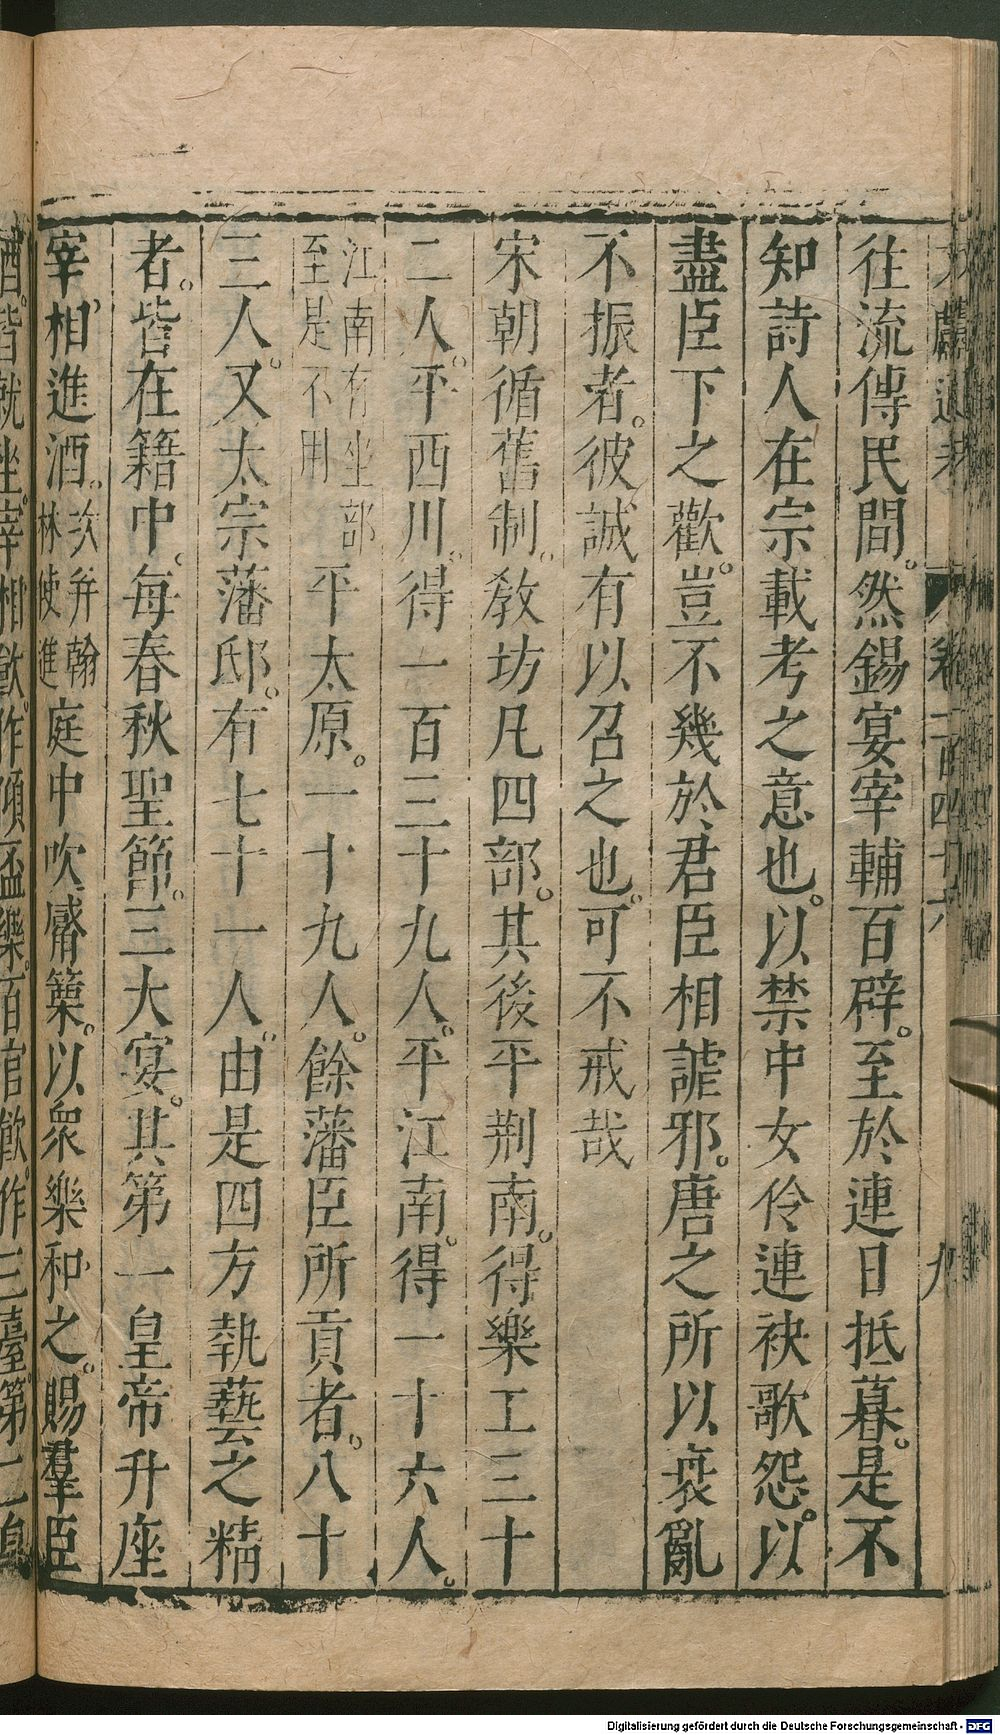 文獻通考 卷一百四十六 九
往流傳民間。然錫宴宰輔百辟。至於連日抵暮。是不
知詩人在宗載考之意也。以禁中女伶連袂歌怨。以
盡臣下之歡。豈不幾於君臣相謔邪。唐之所以衰亂
不振者。彼誠有以召之也。可不戒哉
宋朝循舊制。敎坊凡四部。其後平荆南。得樂工三十
二人。平西川。得一百三十九人。平江南。得一十六人。
江南有坐部
至是不用
平太原。一十九人。餘藩臣所貢者。八十
三人。又太宗藩邸。有七十一人。由是四方執藝之精
者。皆在籍中。每春秋聖節。三大宴。其第一皇帝升座
宰相進酒。
次并翰
林使進
庭中吹觱篥。以衆樂和之。賜羣臣
酒。皆就坐。宰相飮。作傾盃樂。百官飮。作三臺。第二皇
Digitalisierung gefördert durch die Deutsche Forschungsgemeinschaft - DFG